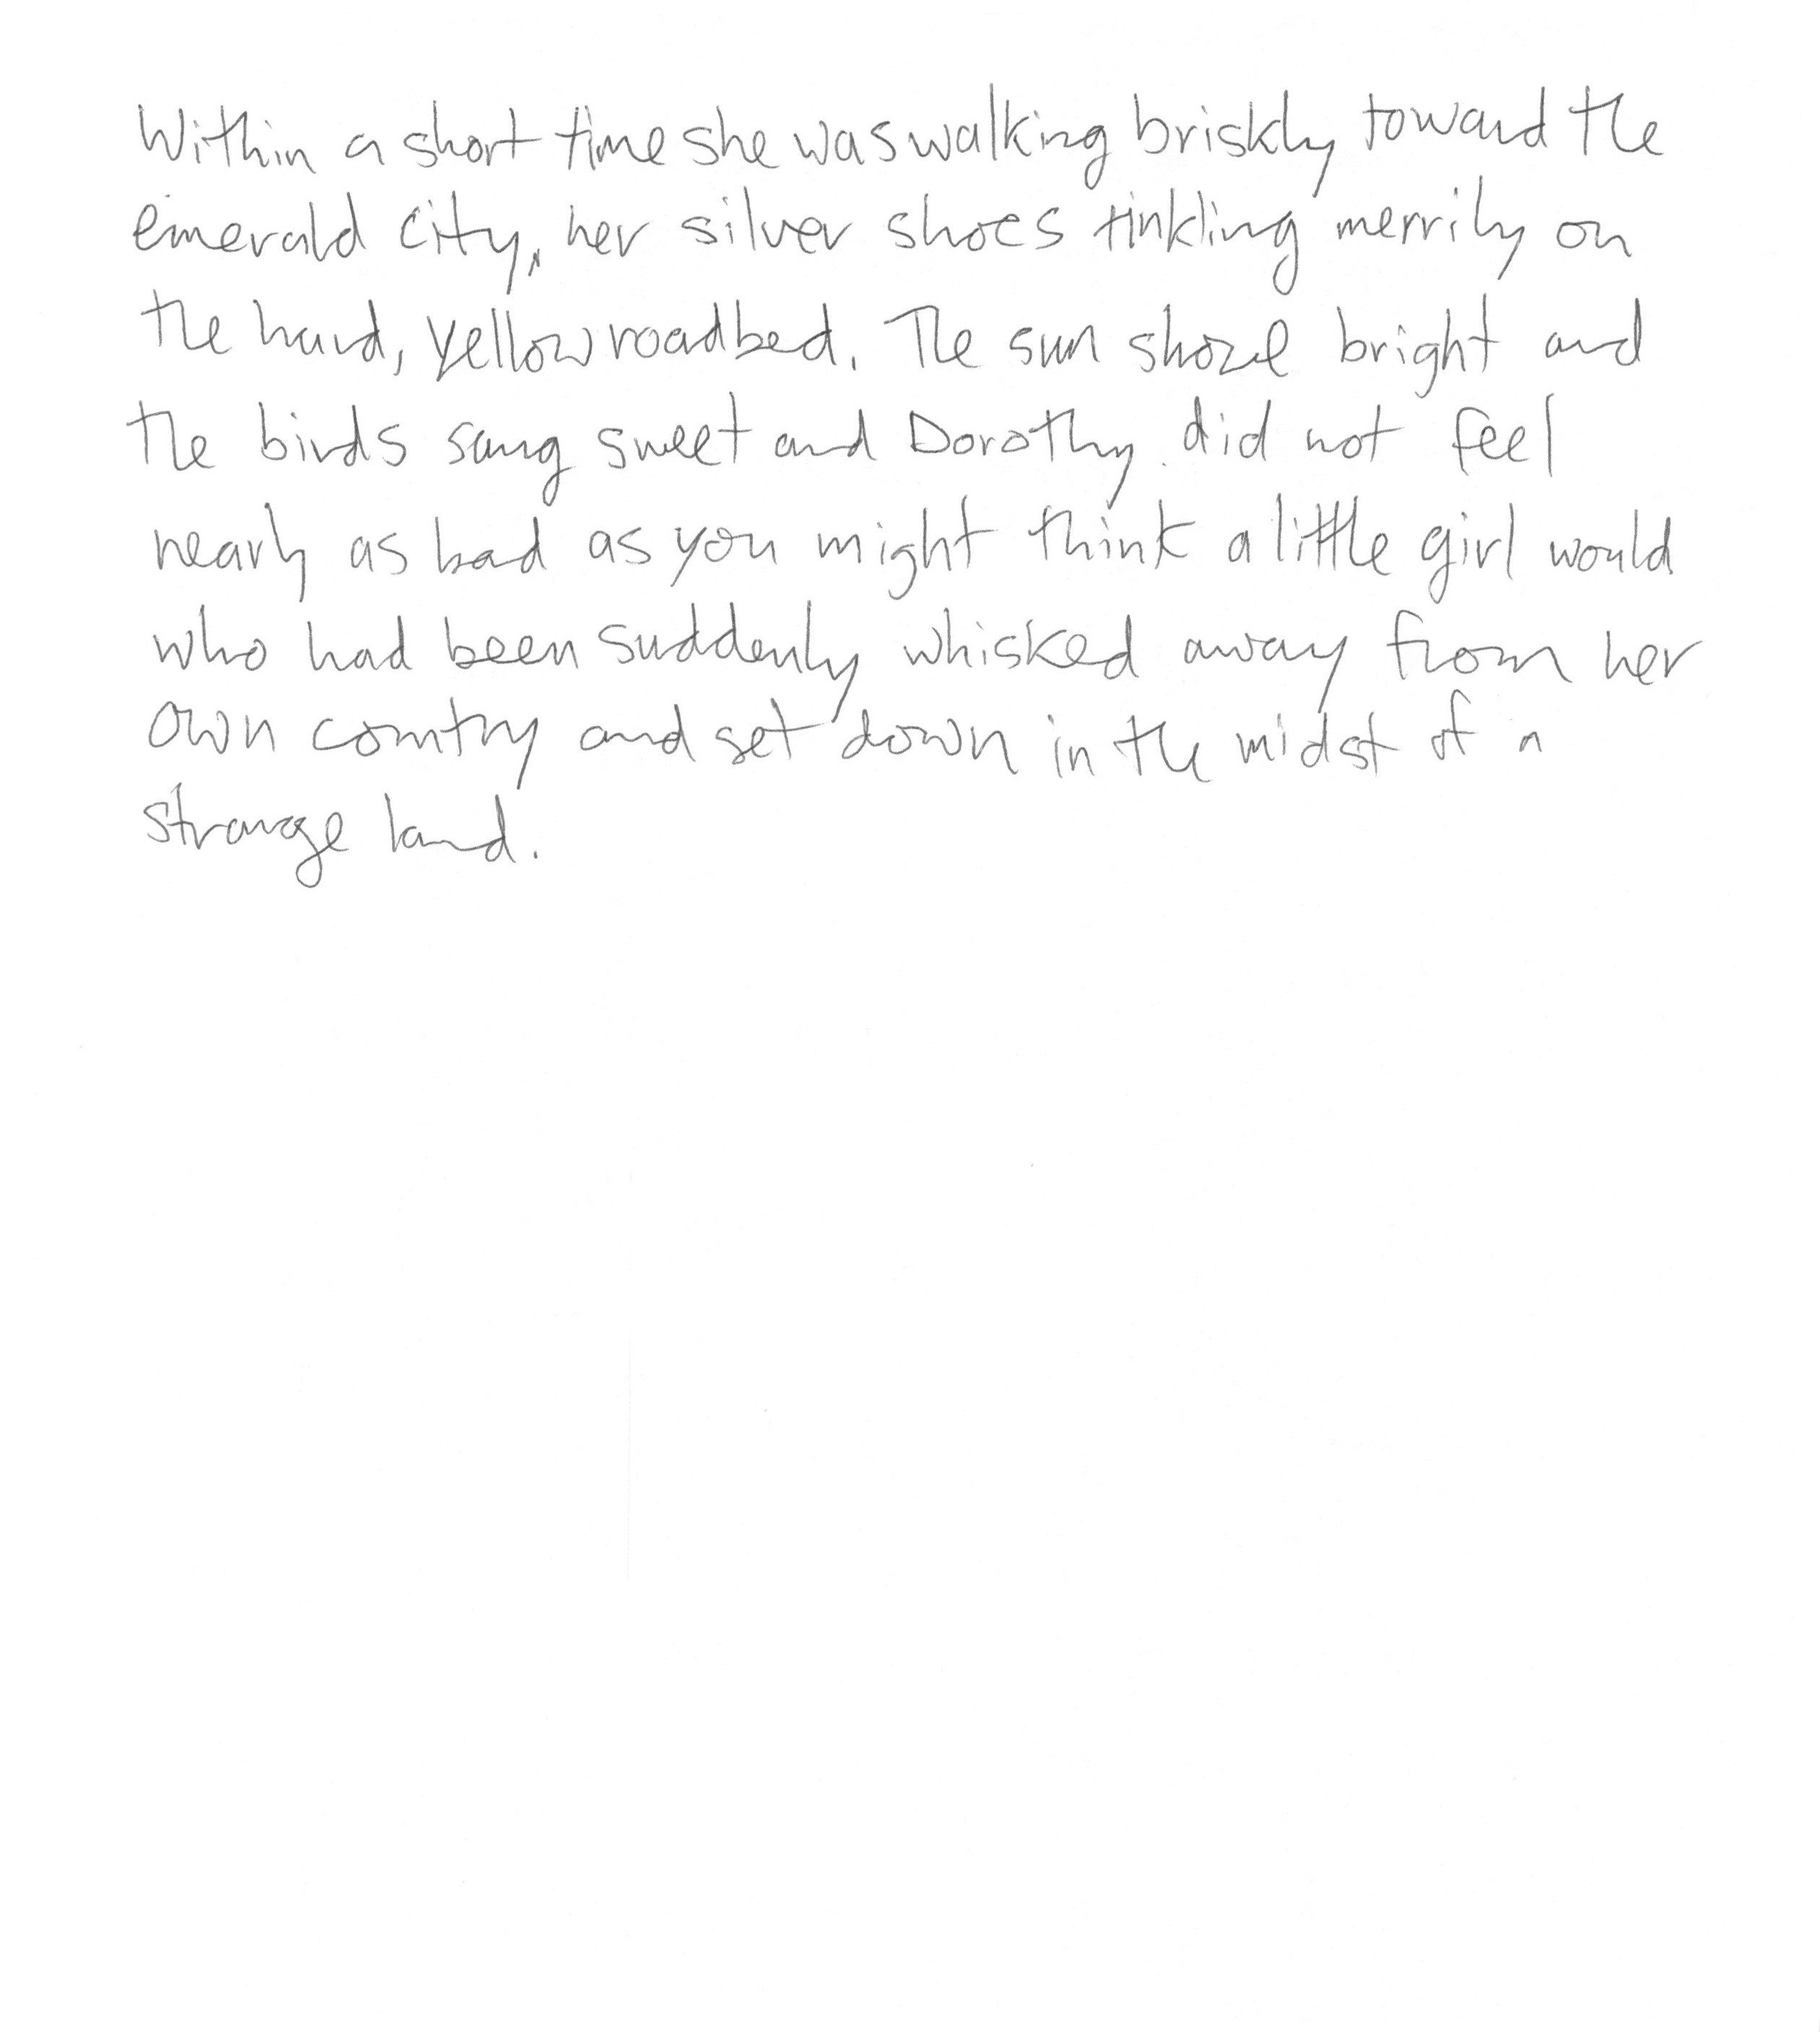 Within a short time she was walking briskly toward the
emerald city, her silver shoes tinkling merrily on
the hard, yellow roadbed. The sun shone bright and
the birds sang sweet and Dorothy did not feel
nearly as bad as you might think a little girl would
who had been suddenly whisked away from her
own country and set down in the midst of a
strange land.